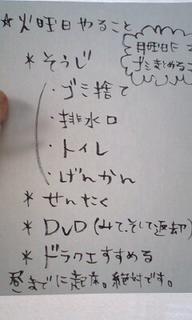 ★火曜日やること
月曜日に
ゴミまとめるこ
* そうじ
・ゴミ捨て
・排水口
・トイレ
・げんかん
* せんたく
* DVD(みて、そして返却)
* ドラクエすすめる
昼までに起床。絶対です。